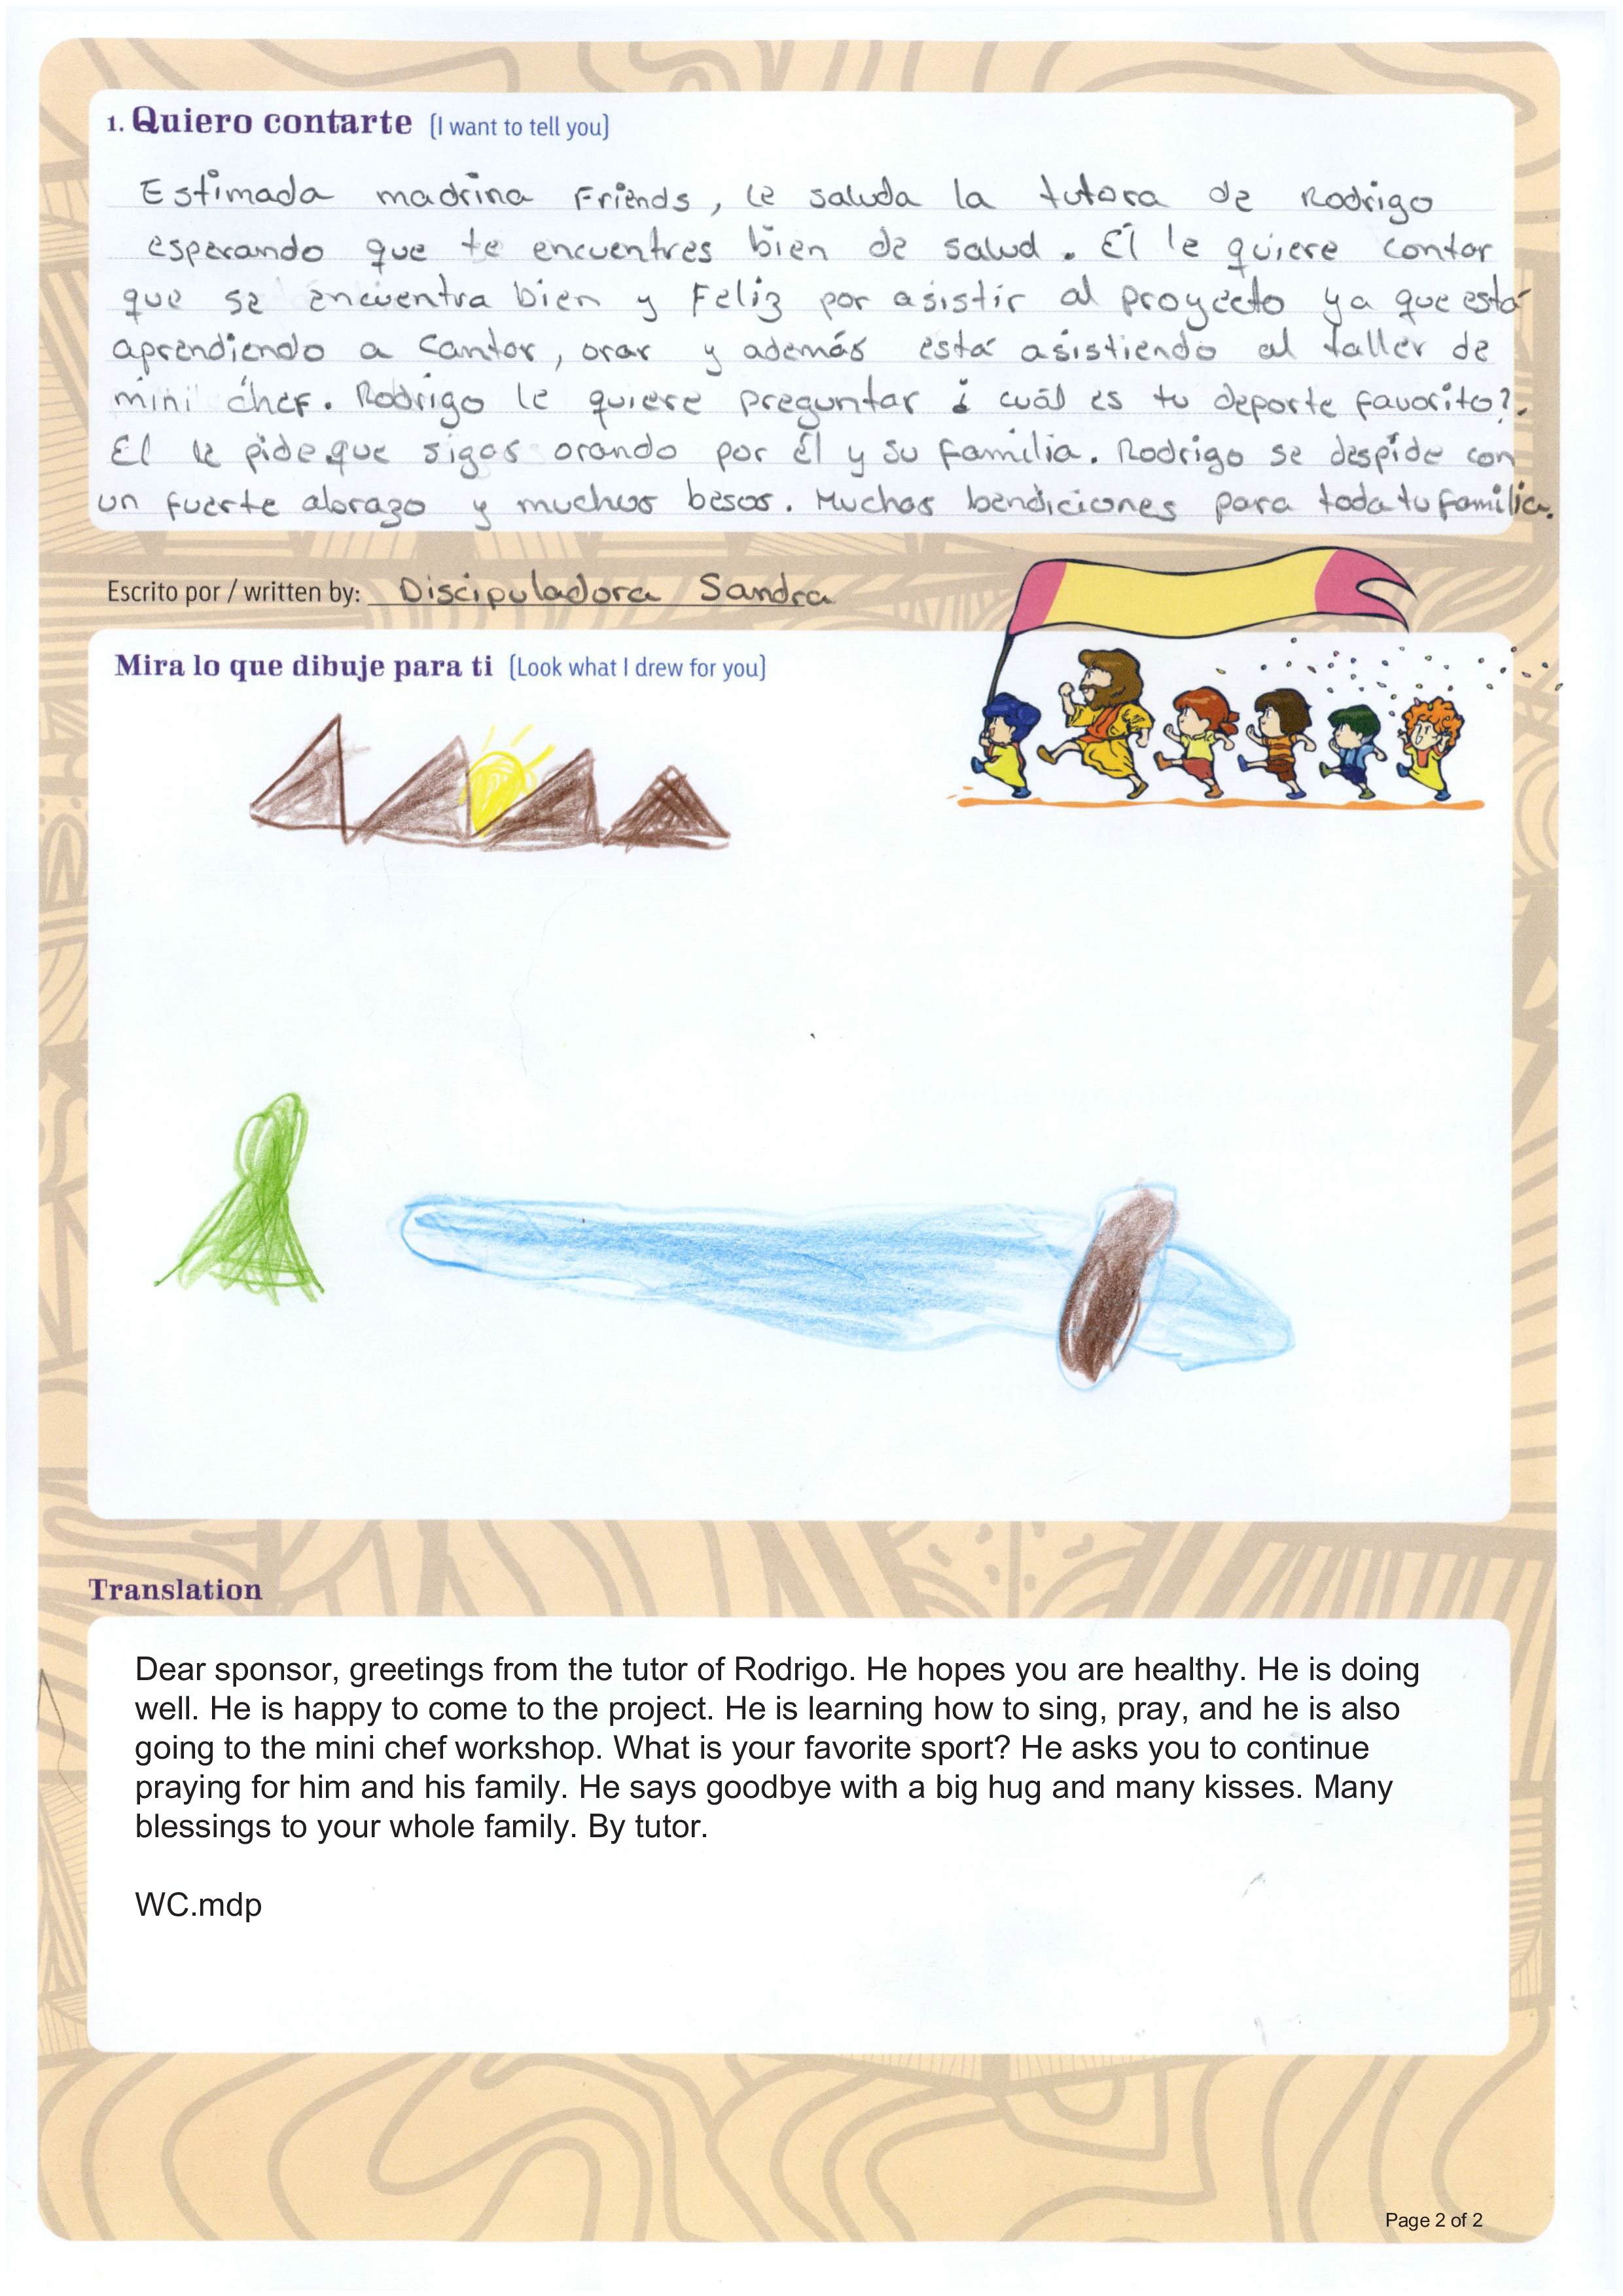 1. Quiero contarte (I want to tell you)
Estimada madrina Friends, le saluda la tutora de Rodrigo
esperando que te encuentres bien de salud. Él le quiere contar
que se encuentra bien y Feliz por asistir al proyecto ya que está
aprendiendo a cantar, orar y además está asistiendo al taller de
mini chef. Rodrigo le quiere preguntar ¿cuál es tu deporte favorito?.
El le pide que sigas orando por Él y su familia. Rodrigo se despide con
un fuerte abrazo y muchos besos. Muchas bendiciones para toda tu familia.
Escrito por / written by: Discipuladora Sandra
Mira lo que dibuje para ti (Look what I drew for you)
Translation
Dear sponsor, greetings from the tutor of Rodrigo. He hopes you are healthy. He is doing
well. He is happy to come to the project. He is learning how to sing, pray, and he is also
going to the mini chef workshop. What is your favorite sport? He asks you to continue
praying for him and his family. He says goodbye with a big hug and many kisses. Many
blessings to your whole family. By tutor.
WC.mdp
Page 2 of 2